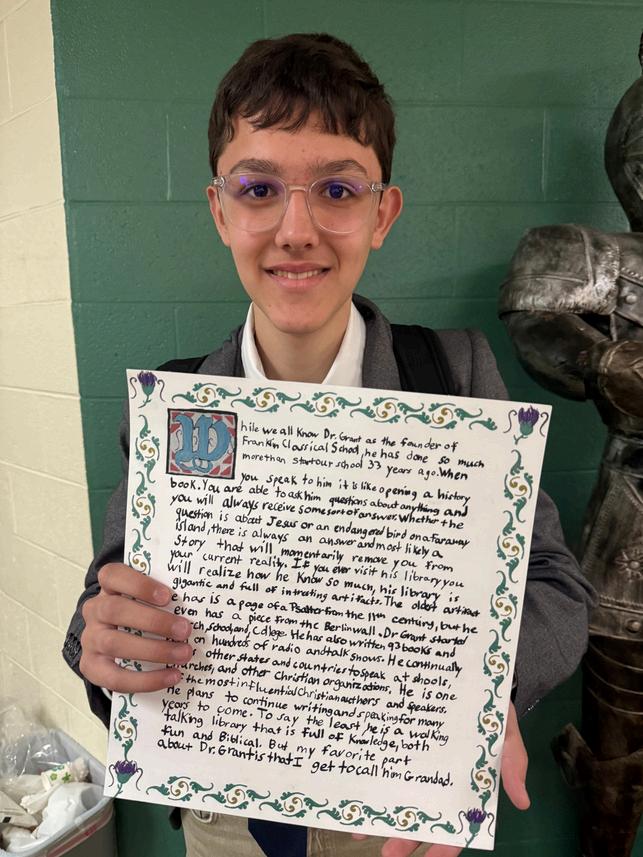 While we all know Dr. Grant as the founder of
Franklin Classical School, he has done so much
more than start our school 33 years ago. When
you speak to him it is like opening a history
book. You are able to ask him questions about anything and
you will always receive some sort of answer. Whether the
question is about Jesus or an endangered bird on a faraway
island, there is always an answer and most likely a
story that will momentarily remove you from
your current reality. If you ever visit his library you
will realize how he know so much, his library is
gigantic and full of intresting artifacts. The oldest artifact
e has is a page of a Psalter from the 11th century, but he
even has a piece from the Berlin wall. Dr. Grant started
rch, school, and, College. He has also written 93 books and
on hundreds of radio and talk shows. He continually
other states and countries to speak at schools,
churches, and other Christian organizations. He is one
the most influential Christian authors and speakers.
He plans to continue writing and speaking for many
years to come. To say the least he is a walking
talking library that is full of knowledge, both
fun and Biblical. But my favorite part
about Dr. Grant is that I get to call him Grandad.